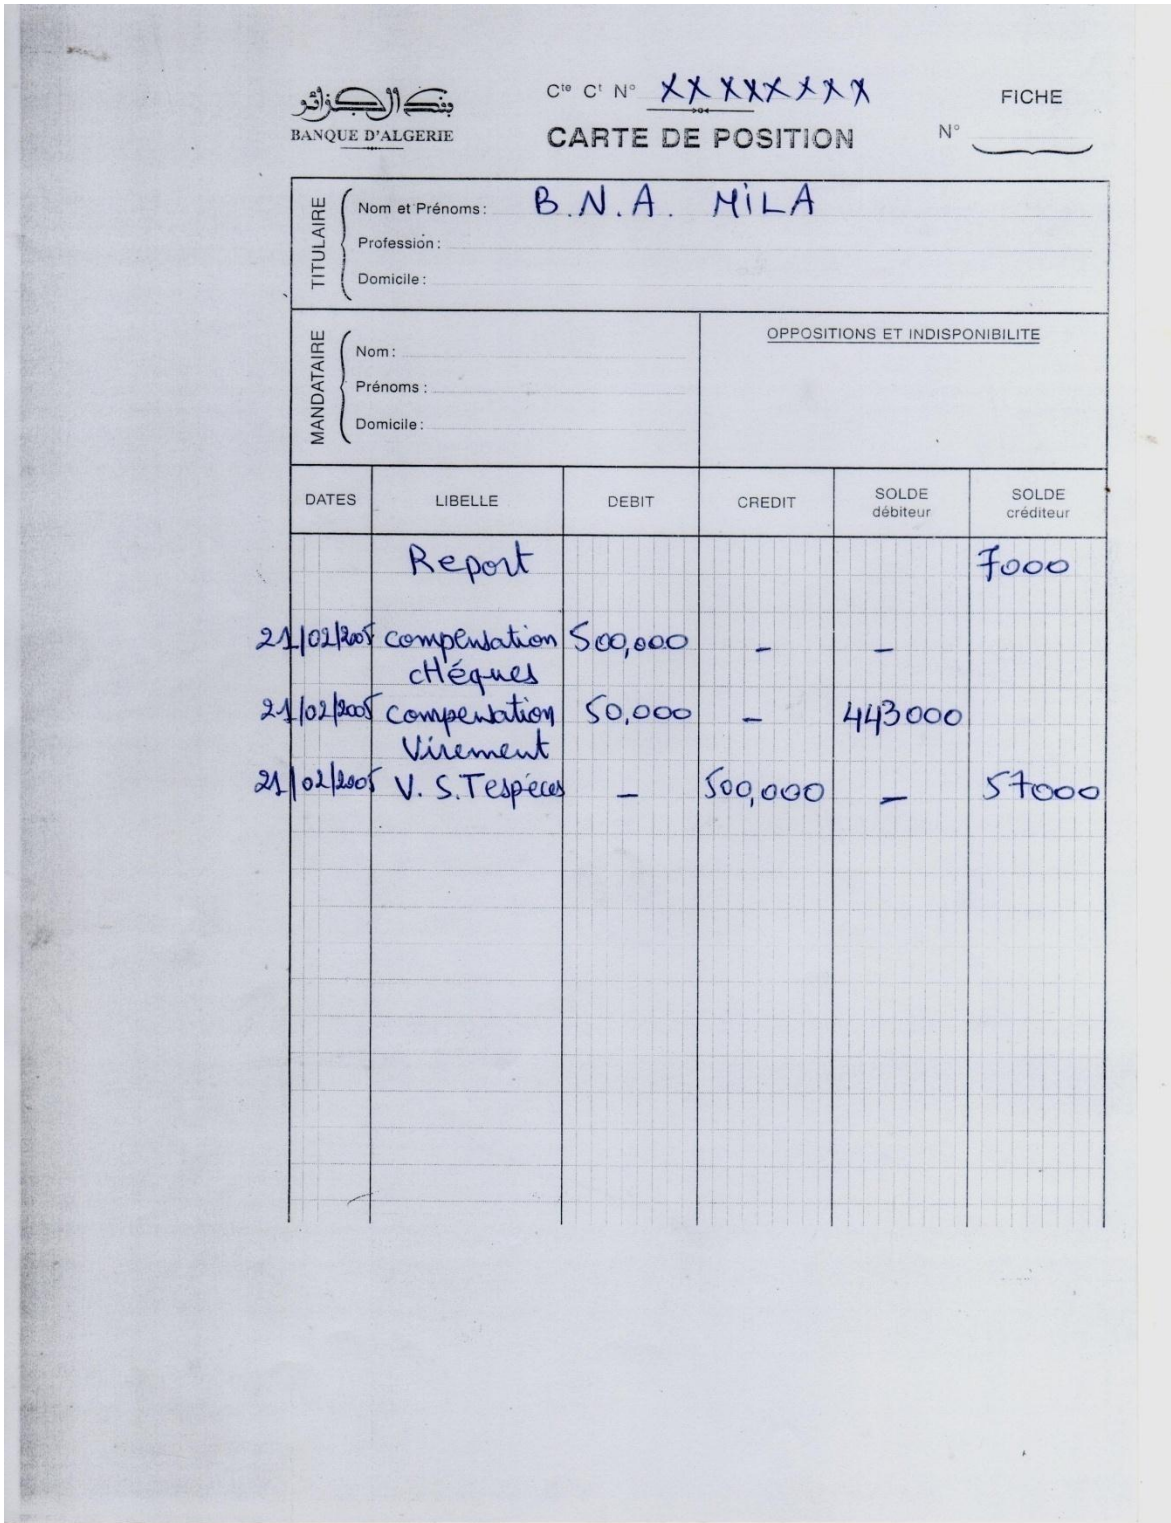 بنك الجزائر
BANQUE D'ALGERIE
Cte Ct N° XXXXXXXX
CARTE DE POSITION
FICHE
N°
TITULAIRE
Nom et Prénoms : B.N.A. MiLA
Profession :
Domicile :
MANDATAIRE
Nom :
Prénoms :
Domicile :
OPPOSITIONS ET INDISPONIBILITE
DATES LIBELLE DEBIT CREDIT SOLDE débiteur SOLDE créditeur
Report 7000
21/02/2005 compensation 500,000 - -
cHéques
21/02/2005 compensation 50,000 - 443000
Virement
21/02/2005 V. S.T espéces - 500,000 - 57000